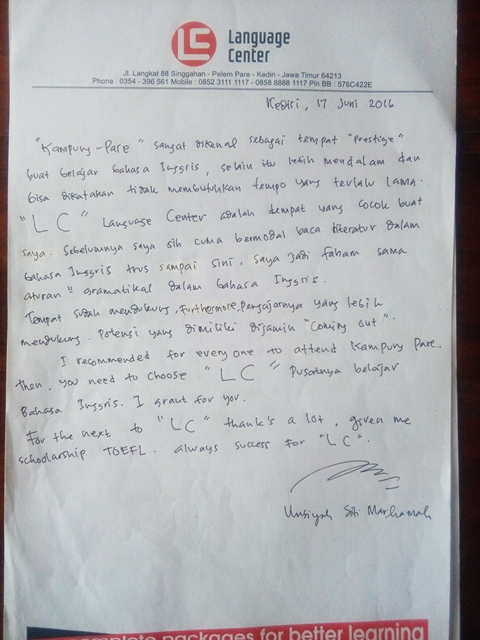 LC
Language
Center
Jl. Langkat 88 Singgahan - Pelem Pare - Kediri - Jawa Timur 64213
Phone : 0354 - 396 561 Mobile : 0852 3111 1117 - 0858 8888 1117 Pin BB : 576C422E
Kediri, 17 Juni 2016
"Kampung-Pare" sangat dikenal sebagai tempat "prestige"
buat belajar bahasa Inggris, selain itu lebih mendalam dan
bisa dikatakan tidak membutuhkan tempo yang terlalu lama.
"LC" Language Center adalah tempat yang cocok buat
saya. Sebelumnya saya sih cuma bermodal baca literatur dalam
bahasa Inggris trus sampai sini, saya jadi faham sama
aturan" gramatikal dalam bahasa Inggris.
Tempat sudah mendukung, Furthermore, Pengajarnya yang lebih
mendukung. Potensi yang dimiliki dijamin "Coming out".
I recommended for every one to attend Kampung Pare.
then, you need to choose "LC" Pusatnya belajar
Bahasa Inggris. I grant for you.
For the next to "LC" thank's a lot, given me
scholarship TOEFL. always success for "LC".
Unsiyah Siti Marhamah
complete packages for better learning